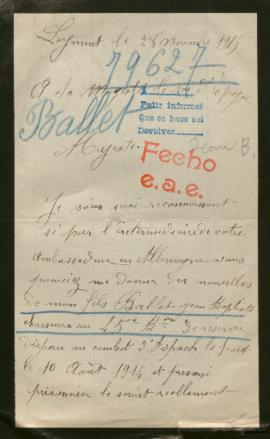 le 28 Novembre 1915
79627
A Sa Majesté le Roi d'Espagne
1
Petir informaé
Que se hace así
Devolver
Ballet
Jean B.
Majesté.
Fecho
e.a.e.
Je vous serai reconnaissant
si par l'intermédiaire de votre
Ambassadeur en Allemagne vous
pouviez me donner des nouvelles
de mon fils Ballet Jean Baptiste
chasseur au 45me Bon de réserve
disparu au combat d'Aspach le
le 10 Août 1914 et présumé
prisonnier le serait réellement